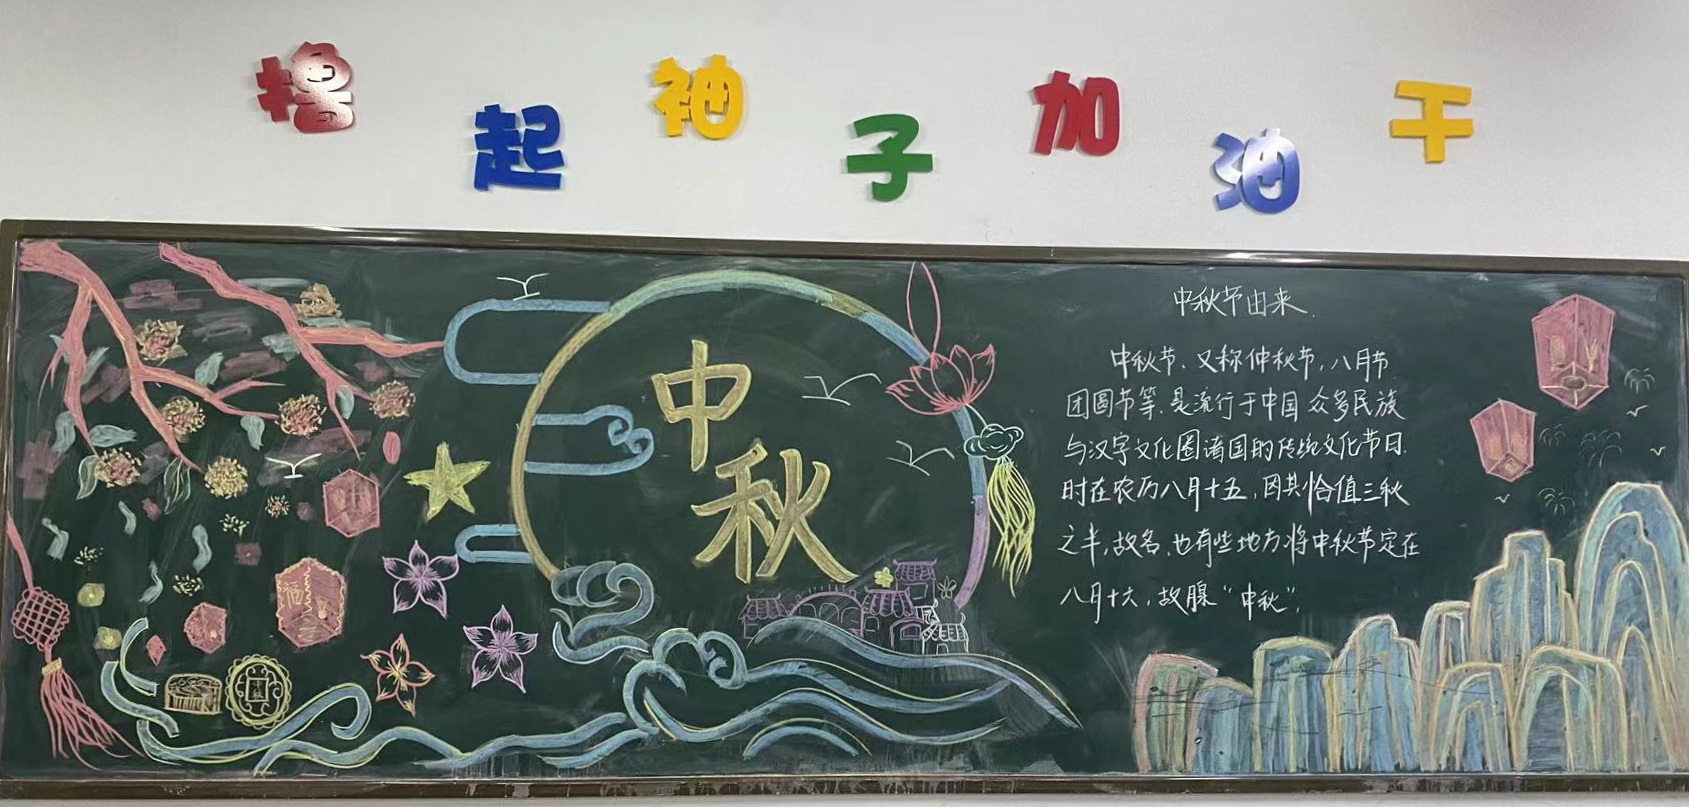 撸起袖子加油干
中秋
中秋节由来
中秋节、又称仲秋节,八月节
团圆节等.是流行于中国众多民族
与汉字文化圈诸国的传统文化节日.
时在农历八月十五,因其恰值三秋
之半,故名、也有些地方将中秋节定在
八月十六,故"中秋".
福